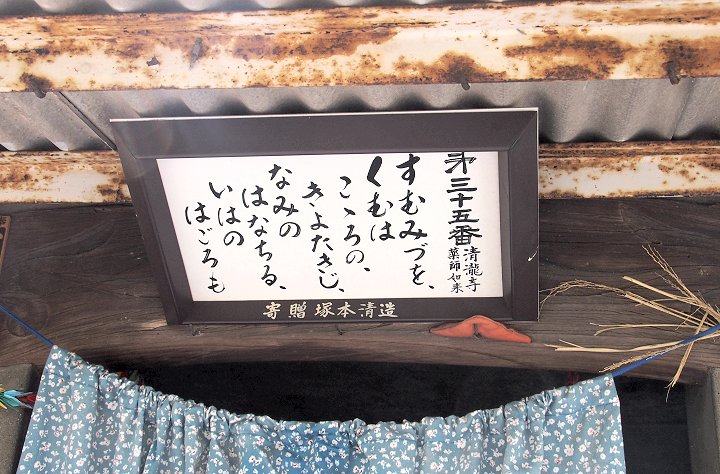 第三十五番 清瀧寺
薬師如来
すむみづを、
くむは
こゝろの、
きよたきじ、
なみの
はなちる、
いはの
はごろも
寄贈 塚本清造